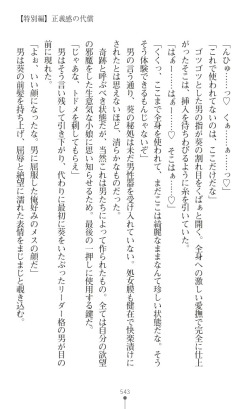 【特別編】正義感の代償
「んひゅ……っ♡　くぁ……ぁっ♡」
「これで使われてないのは、ここだけだな」
ゴツゴツとした男の指が葵の割れ目をくぱぁと開く。全身への激しい愛撫で完全に仕上
がったそこは、チ〇ポを待ちわびるように糸を引いていた。
「はぁ……っ♡　そこ……っ♡　そこはぁ……っ♡」
「くくっ、ここまで全身を使われて、まだここは綺麗なまままなんて珍しい状態だな。そう
そう体験できるもんじゃないぞ」
男の言う通り、葵の秘裂はまだ男性器を受け入れていない。処女膜も健在で快楽漬けに
されたとは思えないほど、清らかなものだった。
奇跡と呼ぶべき状態だが、当然これは男たちによって作られたもの。全ては自分の欲望
の邪魔をした生意気な小娘に思い知らせるため。最後の一押しに使用する鍵だ。
「じゃあな、トドメを刺してもらえ」
男はそう言い残して引き下がり、代わりに最初に葵をいたぶったリーダー格の男が目の
前に現れた。
「よぉ、いい顔になったな。男に屈服した俺好みのメスの顔だ」
男は葵の前髪を持ち上げ、屈辱と絶望に濡れた表情をまじまじと覗き込む。
543